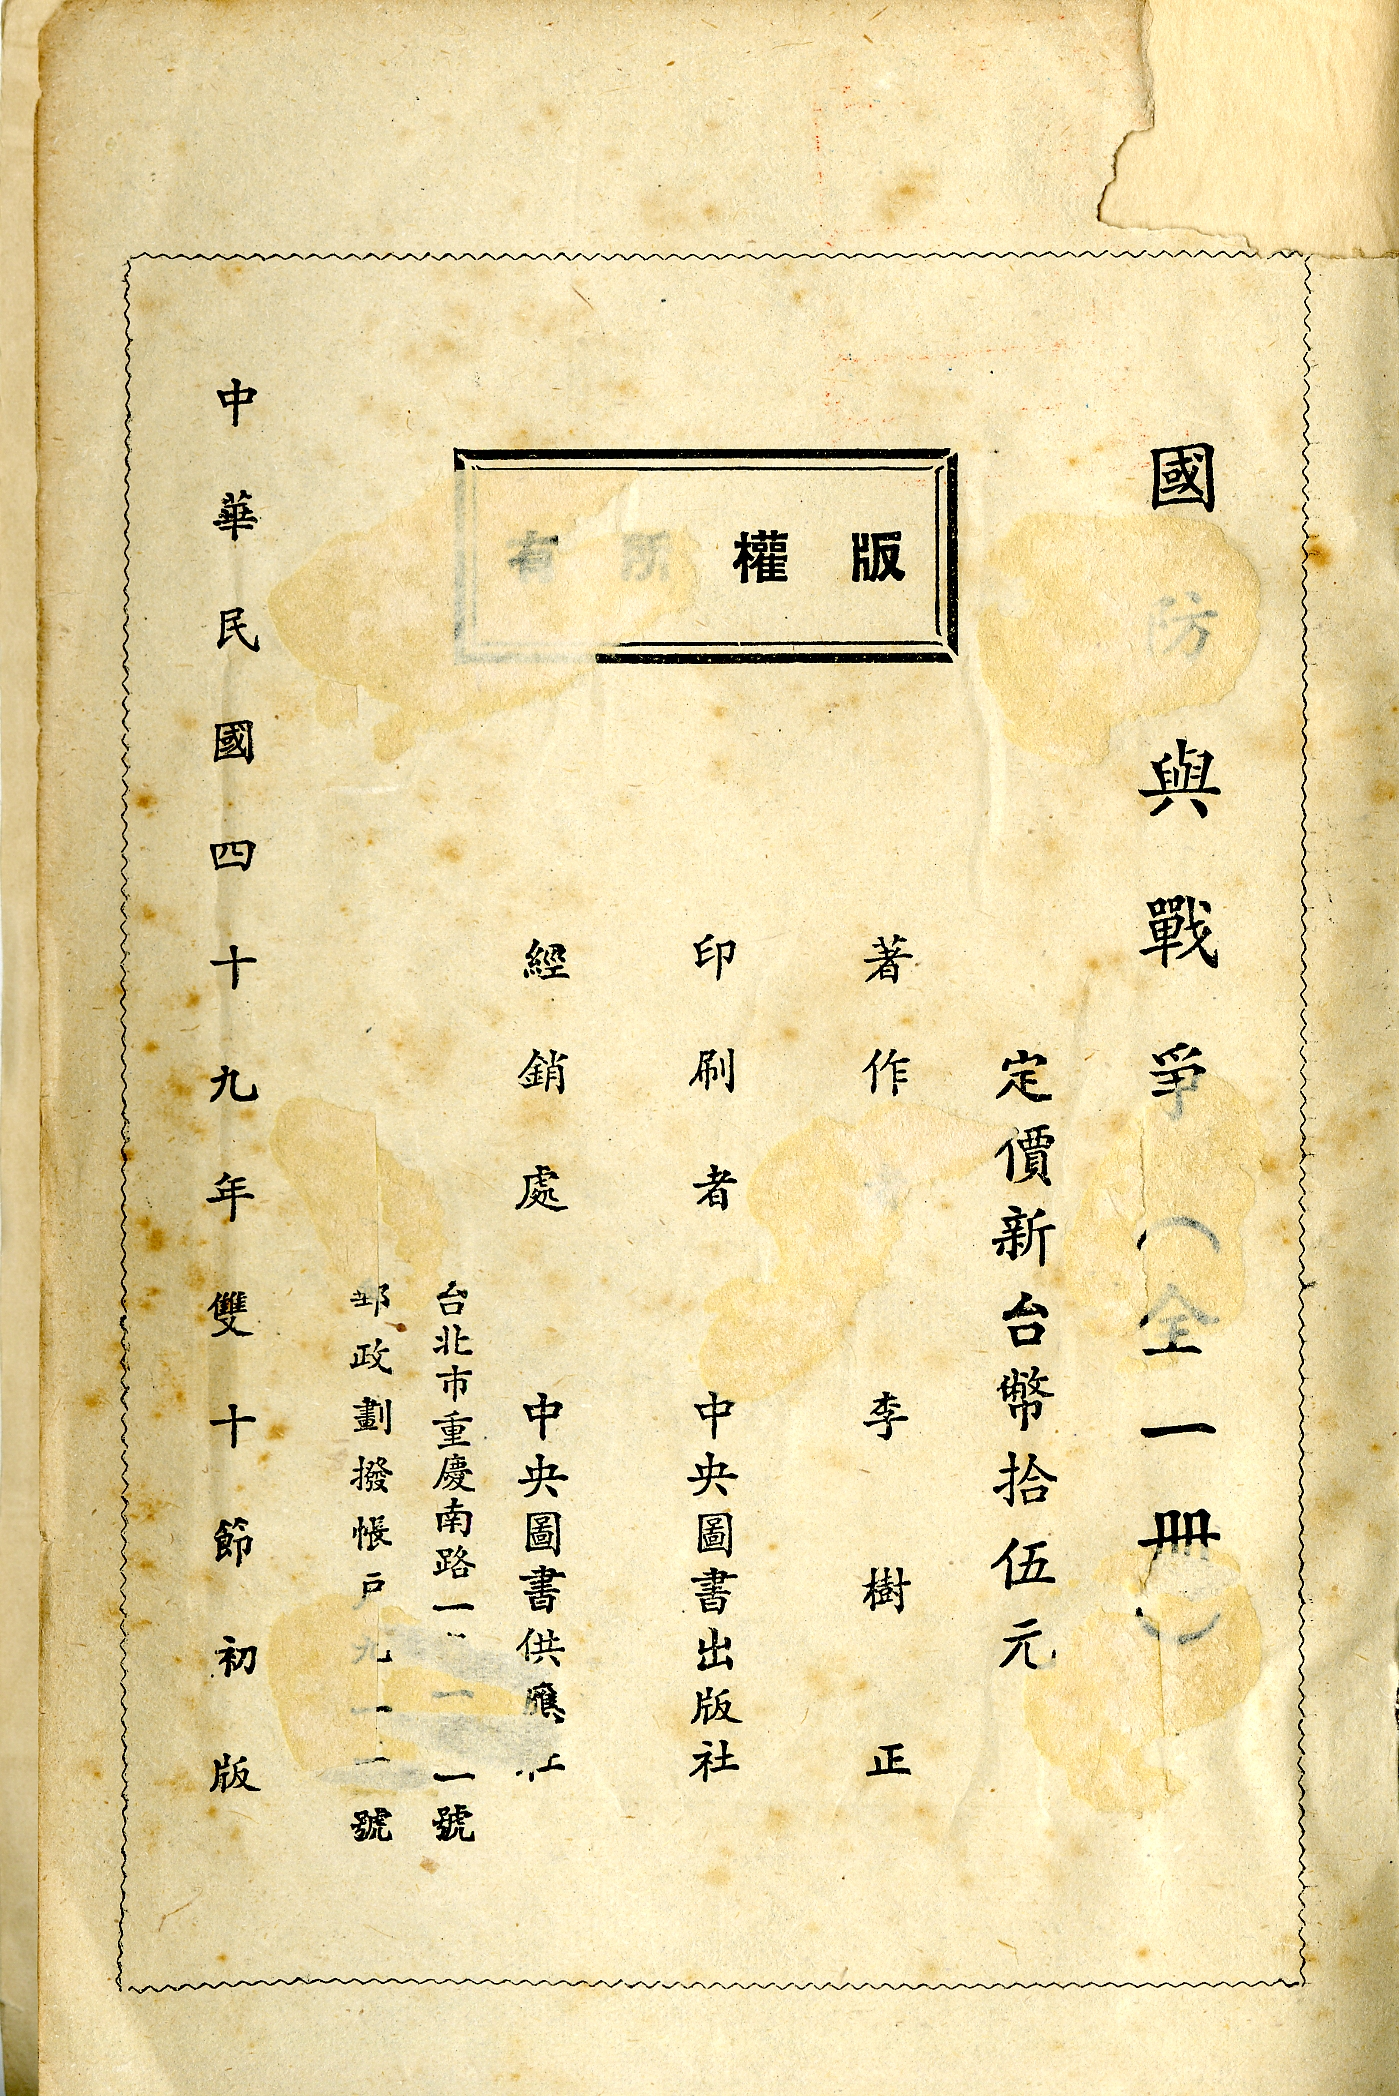 國防與戰爭（全一冊）
定價新台幣拾伍元
版權所有
著作 李樹正
印刷者 中央圖書出版社
經銷處 中央圖書供應社
台北市重慶南路一 一 一號
郵政劃撥帳戶九一 號
中華民國四十九年雙十節初版